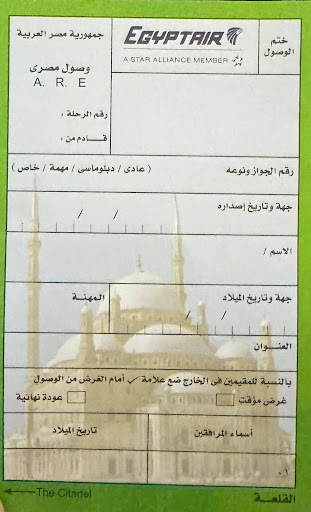 جمهورية مصر العربية
EGYPTAIR
A STAR ALLIANCE MEMBER
ختم
الوصول
وصول مصرى
A. R. E
رقم الرحلة :
قـادم من :
رقم الجواز ونوعه ( عادى / دبلوماسى / مهمة / خاص )
جهة وتاريخ إصداره
/ /
الاسم /
جهة وتاريخ الميلاد
/ /
المهنـة
العنـــوان
بالنسبة للمقيمين فى الخارج ضع علامة ✓ أمام الغرض من الوصول
غرض مؤقت
عودة نهائية
أسماء المرافقين
تاريخ الميلاد
٠١
The Citadel
القلعـــة